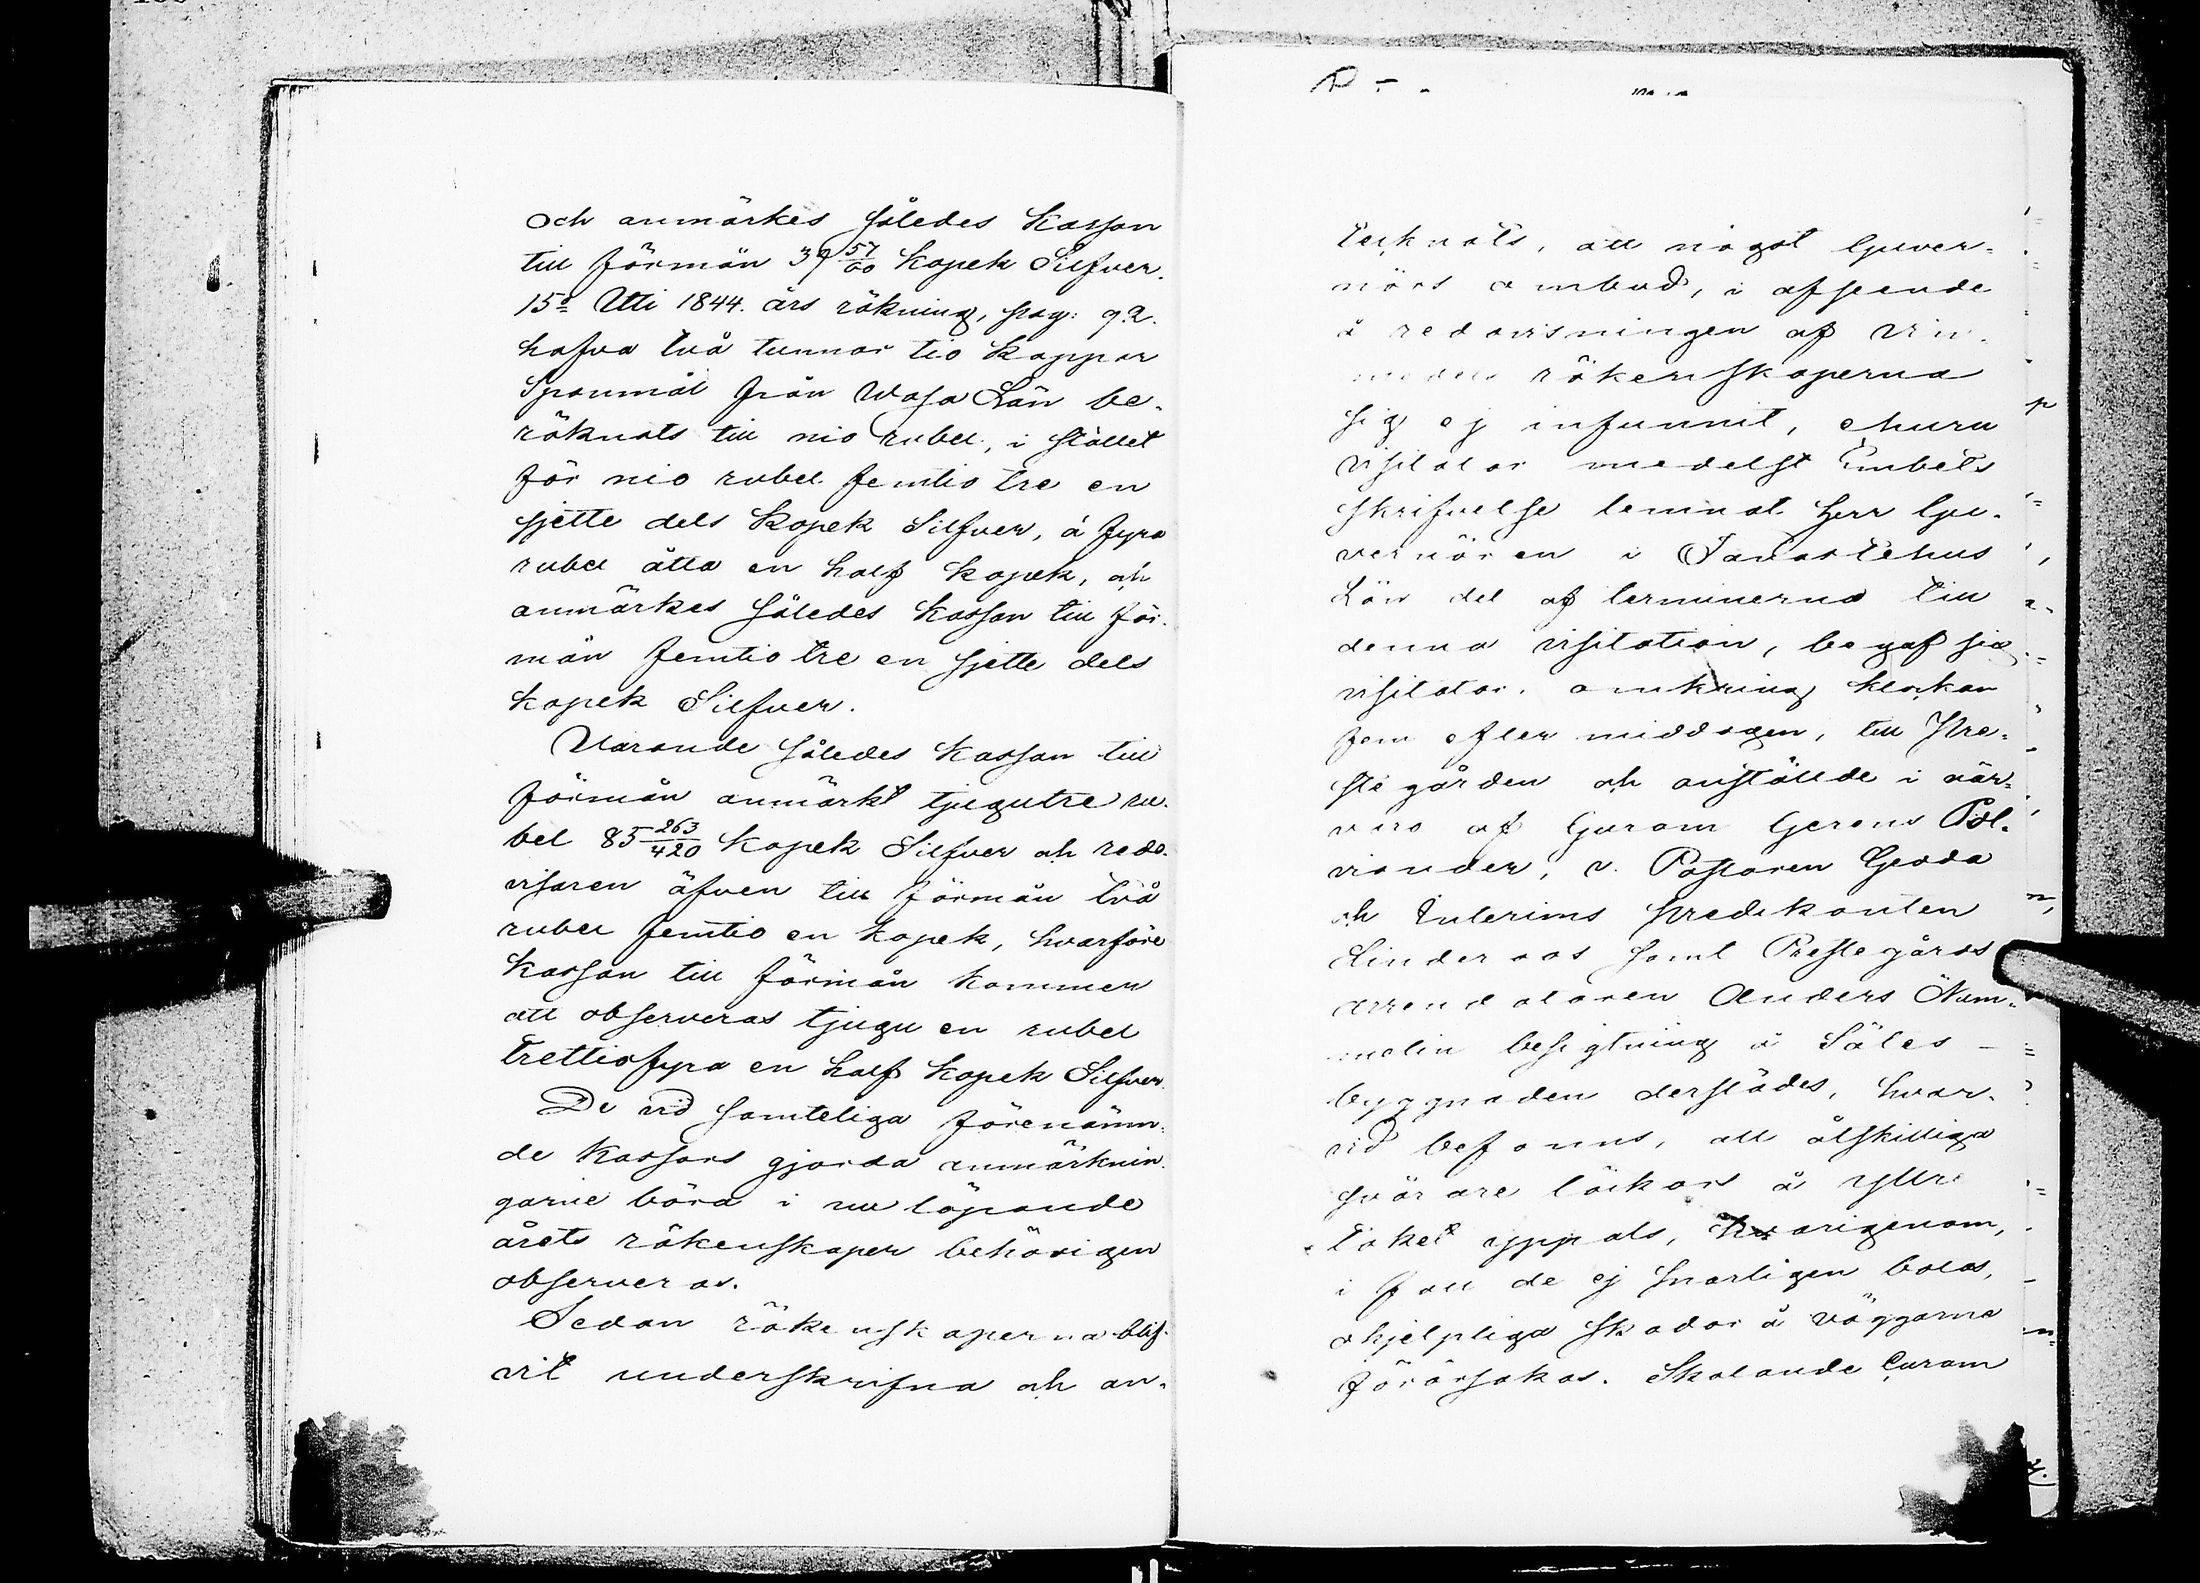 och anmärkes således Kassan
till förmån 39 57/60 Kopek Silfver.
15o Uti 1844. års räkning, pag: 92.
hafva två tunnor tio kappar
Spanmål från Wasa Län be-
räknats till nio rubel, i stället
för nio rubel femtiotre en
sjette dels Kopek Silfver, á fyra
rubel åtta en half kopek, och
anmärkes således Kassan till för-
mån femtiotre en sjette dels
kopek Silfver.
Varande således Kassan till
förmån anmärkt tjugutre ru-
bel 85 263/420 Kopek Silfver och redo-
visaren äfven till förmån två
rubel femtio en kopek, hvarföre
Kassan till förmån kommer
att observeras tjugu en rubel
trettiofyra en half kopek Silfver.
De vid samteliga förenämn-
de Kassors gjorda anmärknin-
garne böra i nu löpande
årets räkenskaper behörigen
observeras.
Sedan räkenskaperna blif-
vit underskrifna och an-
tecknats, att något Guver-
nörs ombud, i afseende
å redovisningen af vin-
räkenskaperna
sig ej infunnit, ehuru
visitator medelst Embets
skrifvelse lemnat Herr Gu-
vernören i Tavastehus
Län del af terminerna till
denna visitation, begaf sig
visitator omkring klockan
fem efter middagen, till Pre-
stegården och anstälde i när-
varo af Curam Gerens Pol-
viander, v. Pastoren Geoda
och Interims predikanten
Linderoos samt Prestegårds
arrendatoren Anders Num-
melin besigtning å Säles-
byggnaden derstädes, hvar-
vid befanns, att åtskilliga
svårare läckor å yttre
taket yppats, hvarigenom,
i fall de ej snarligen botas,
ohjelpliga skador å väggarna
förorsakas. Skolande Curam